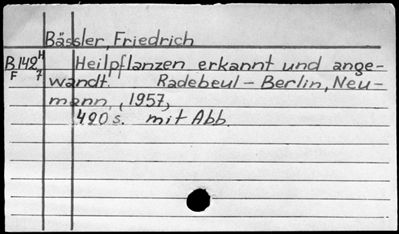 Bässler, Friedrich
B 142 H Heilpflanzen erkannt und ange-
F 7 wandt. Radebeul - Berlin, Neu-
mann, , 1957,
420 s. mit Abb.